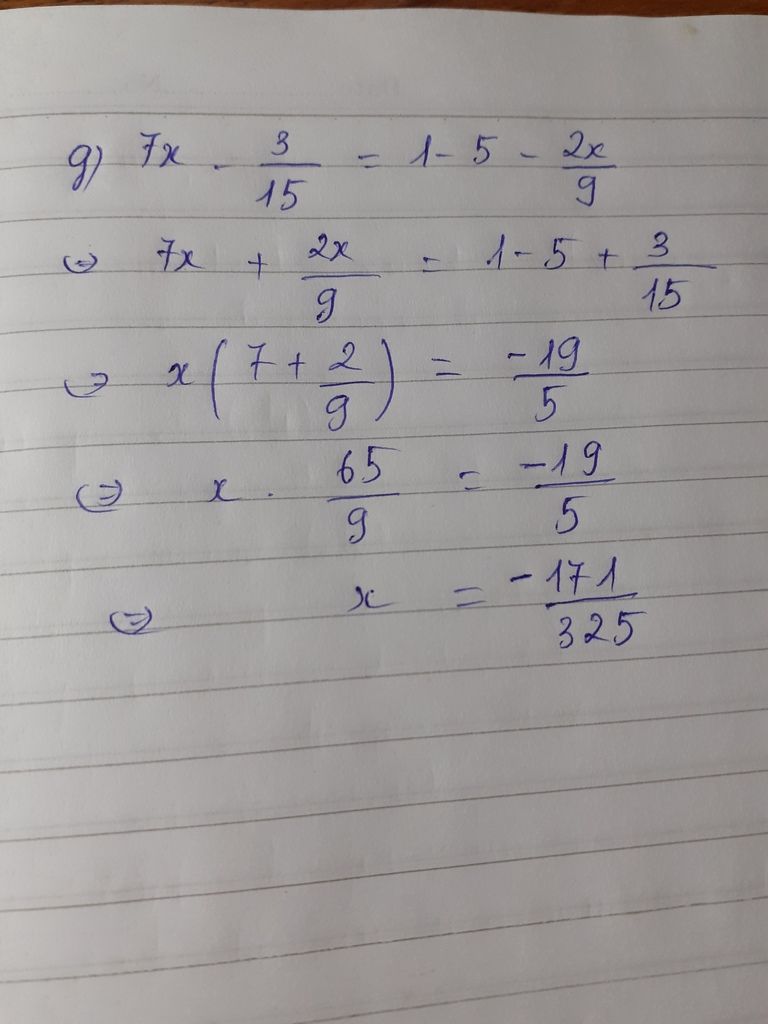 g) 7x - 3/15 = 1 - 5 - 2x/9
⇔ 7x + 2x/9 = 1 - 5 + 3/15
⇔ x(7 + 2/9) = -19/5
⇔ x . 65/9 = -19/5
⇔ x = -171/325